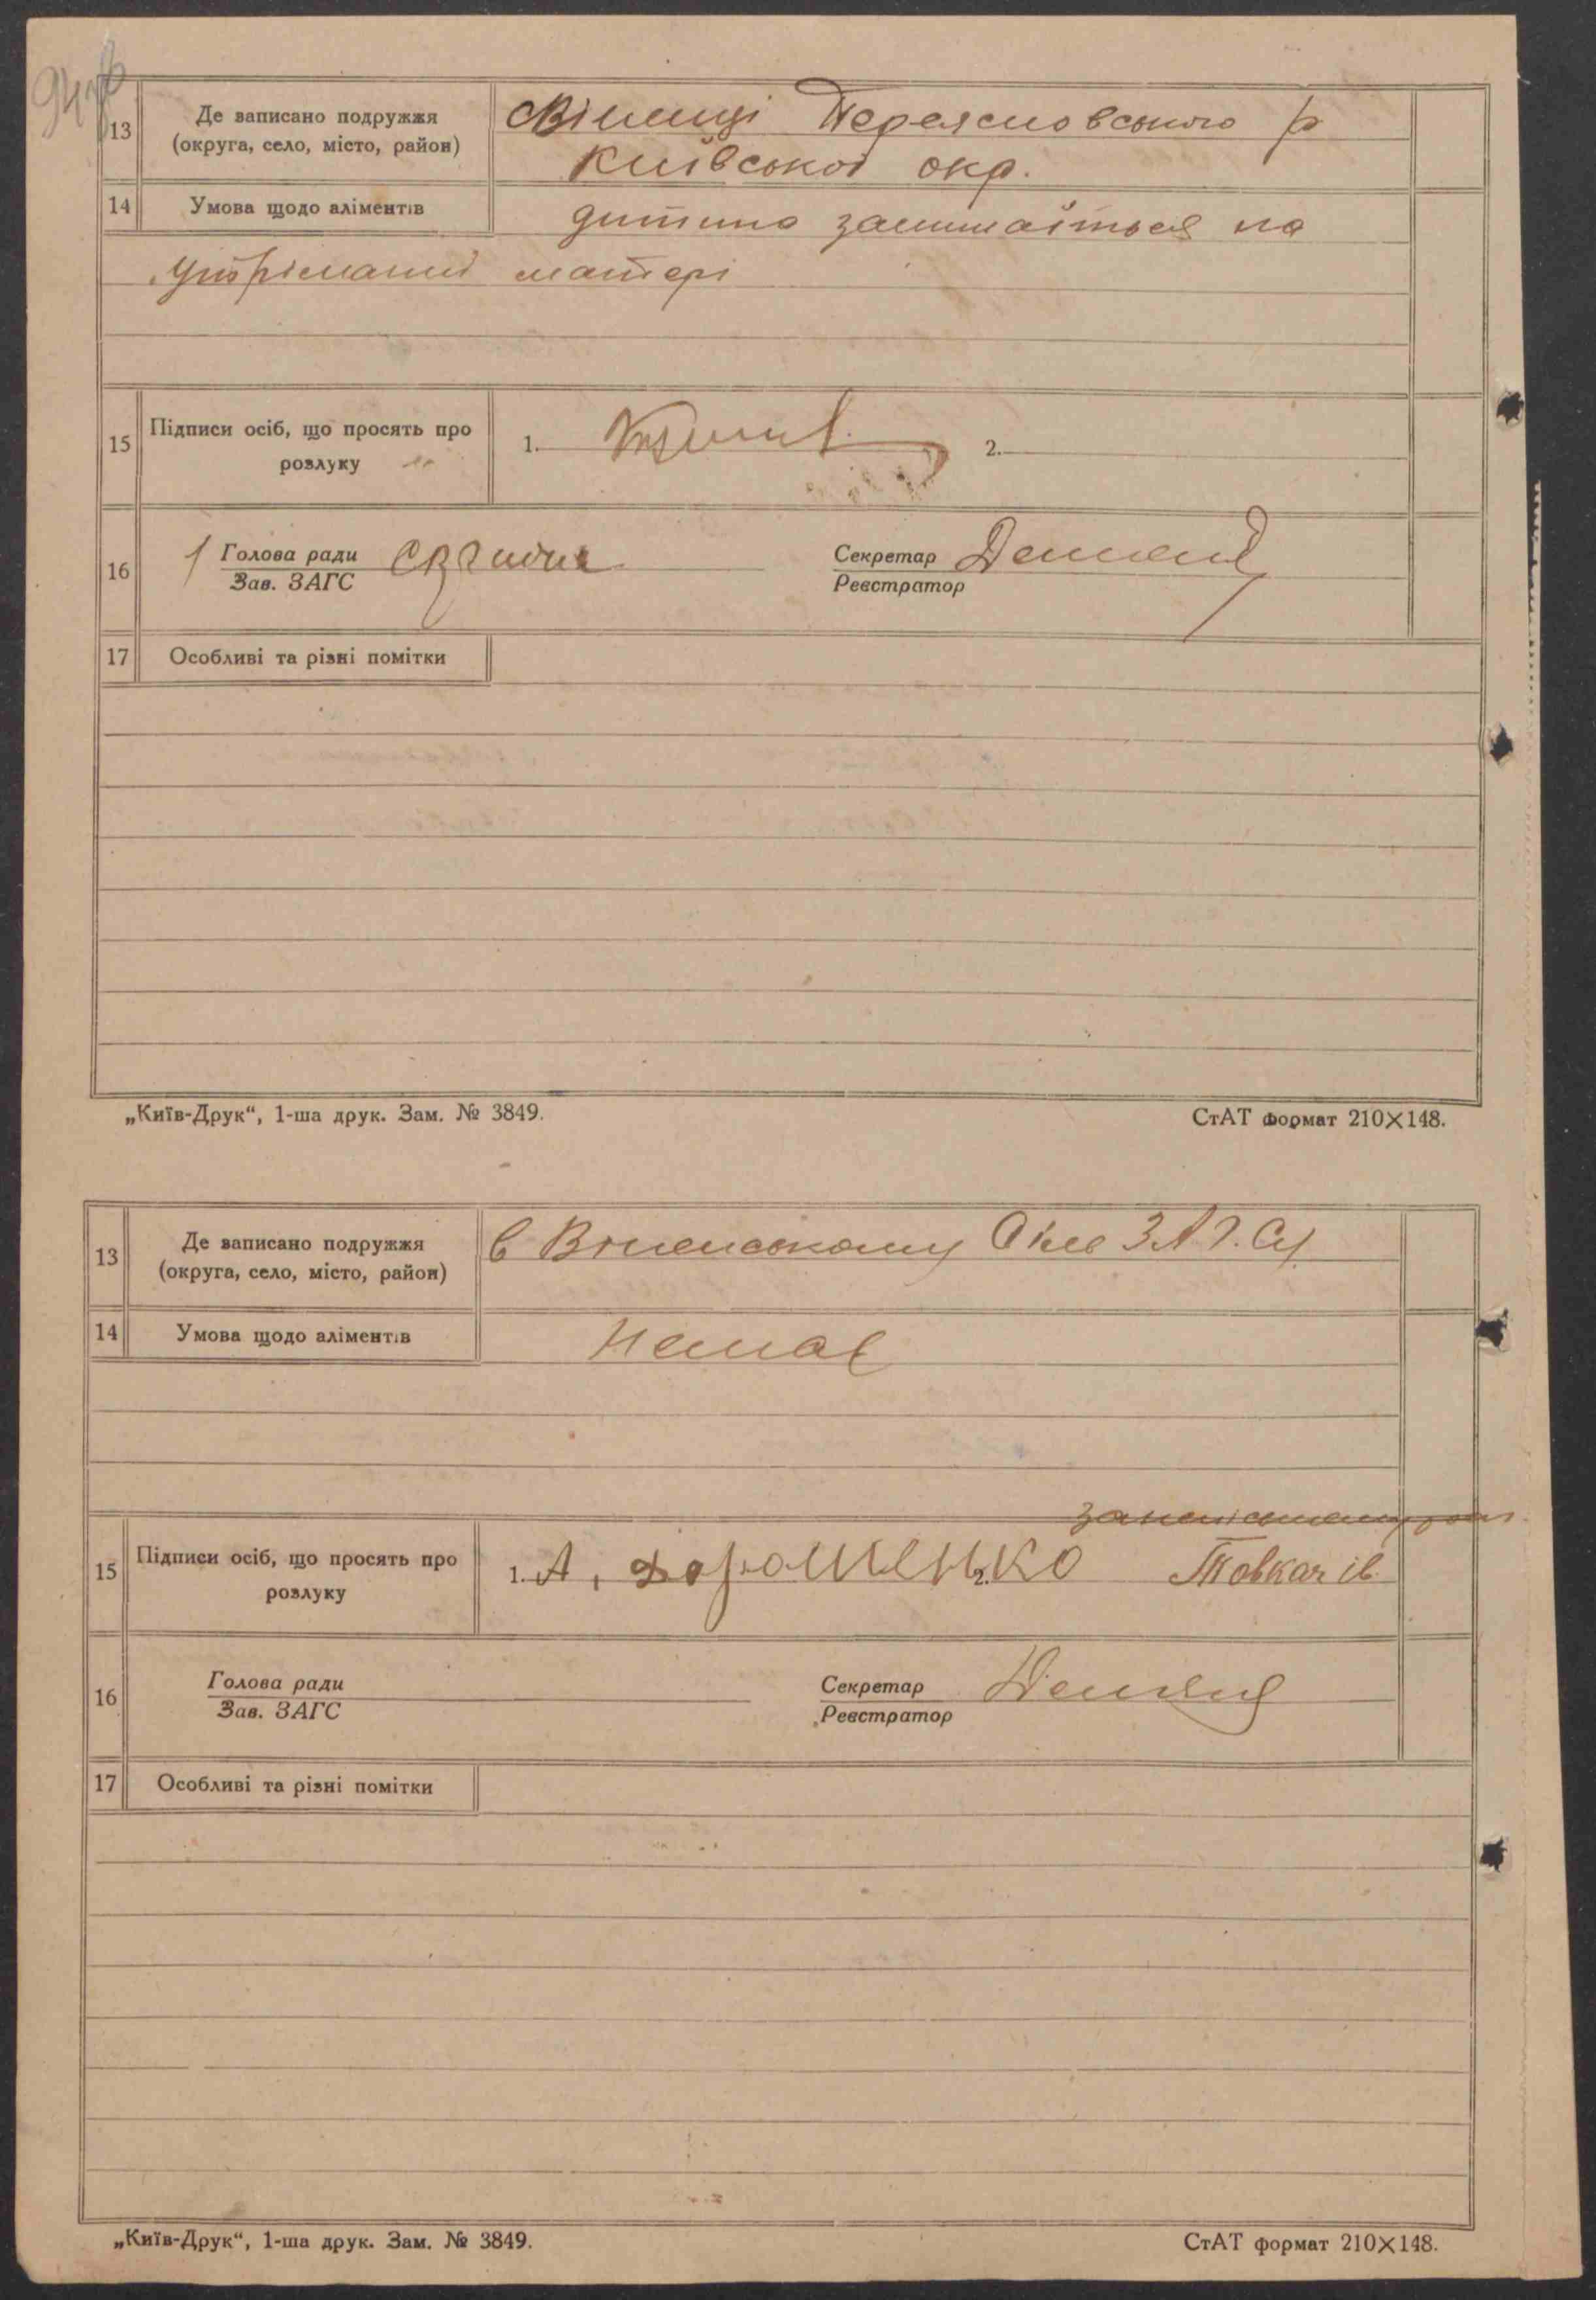 94зв
13
Де записано подружжя
(округа, село, місто, район)
Вілиці Переяславського р
Київської окр.
14
Умова щодо аліментів
дитина залишається на
утріманні матері
15
Підписи осіб, що просять про
розлуку
1.
2.
16
Голова ради
Зав. ЗАГС
Секретар
Реєстратор
17
Особливі та різні помітки
„Київ-Друк“, 1-ша друк. Зам. № 3849.
СтАТ формат 210×148.
13
Де записано подружжя
(округа, село, місто, район)
в З.А.Г.Сі
14
Умова щодо аліментів
Немає
15
Підписи осіб, що просять про
розлуку
1. А, Дорошенко
2. Товкач
16
Голова ради
Зав. ЗАГС
Секретар
Реєстратор
17
Особливі та різні помітки
„Київ-Друк“, 1-ша друк. Зам. № 3849.
СтАТ формат 210×148.